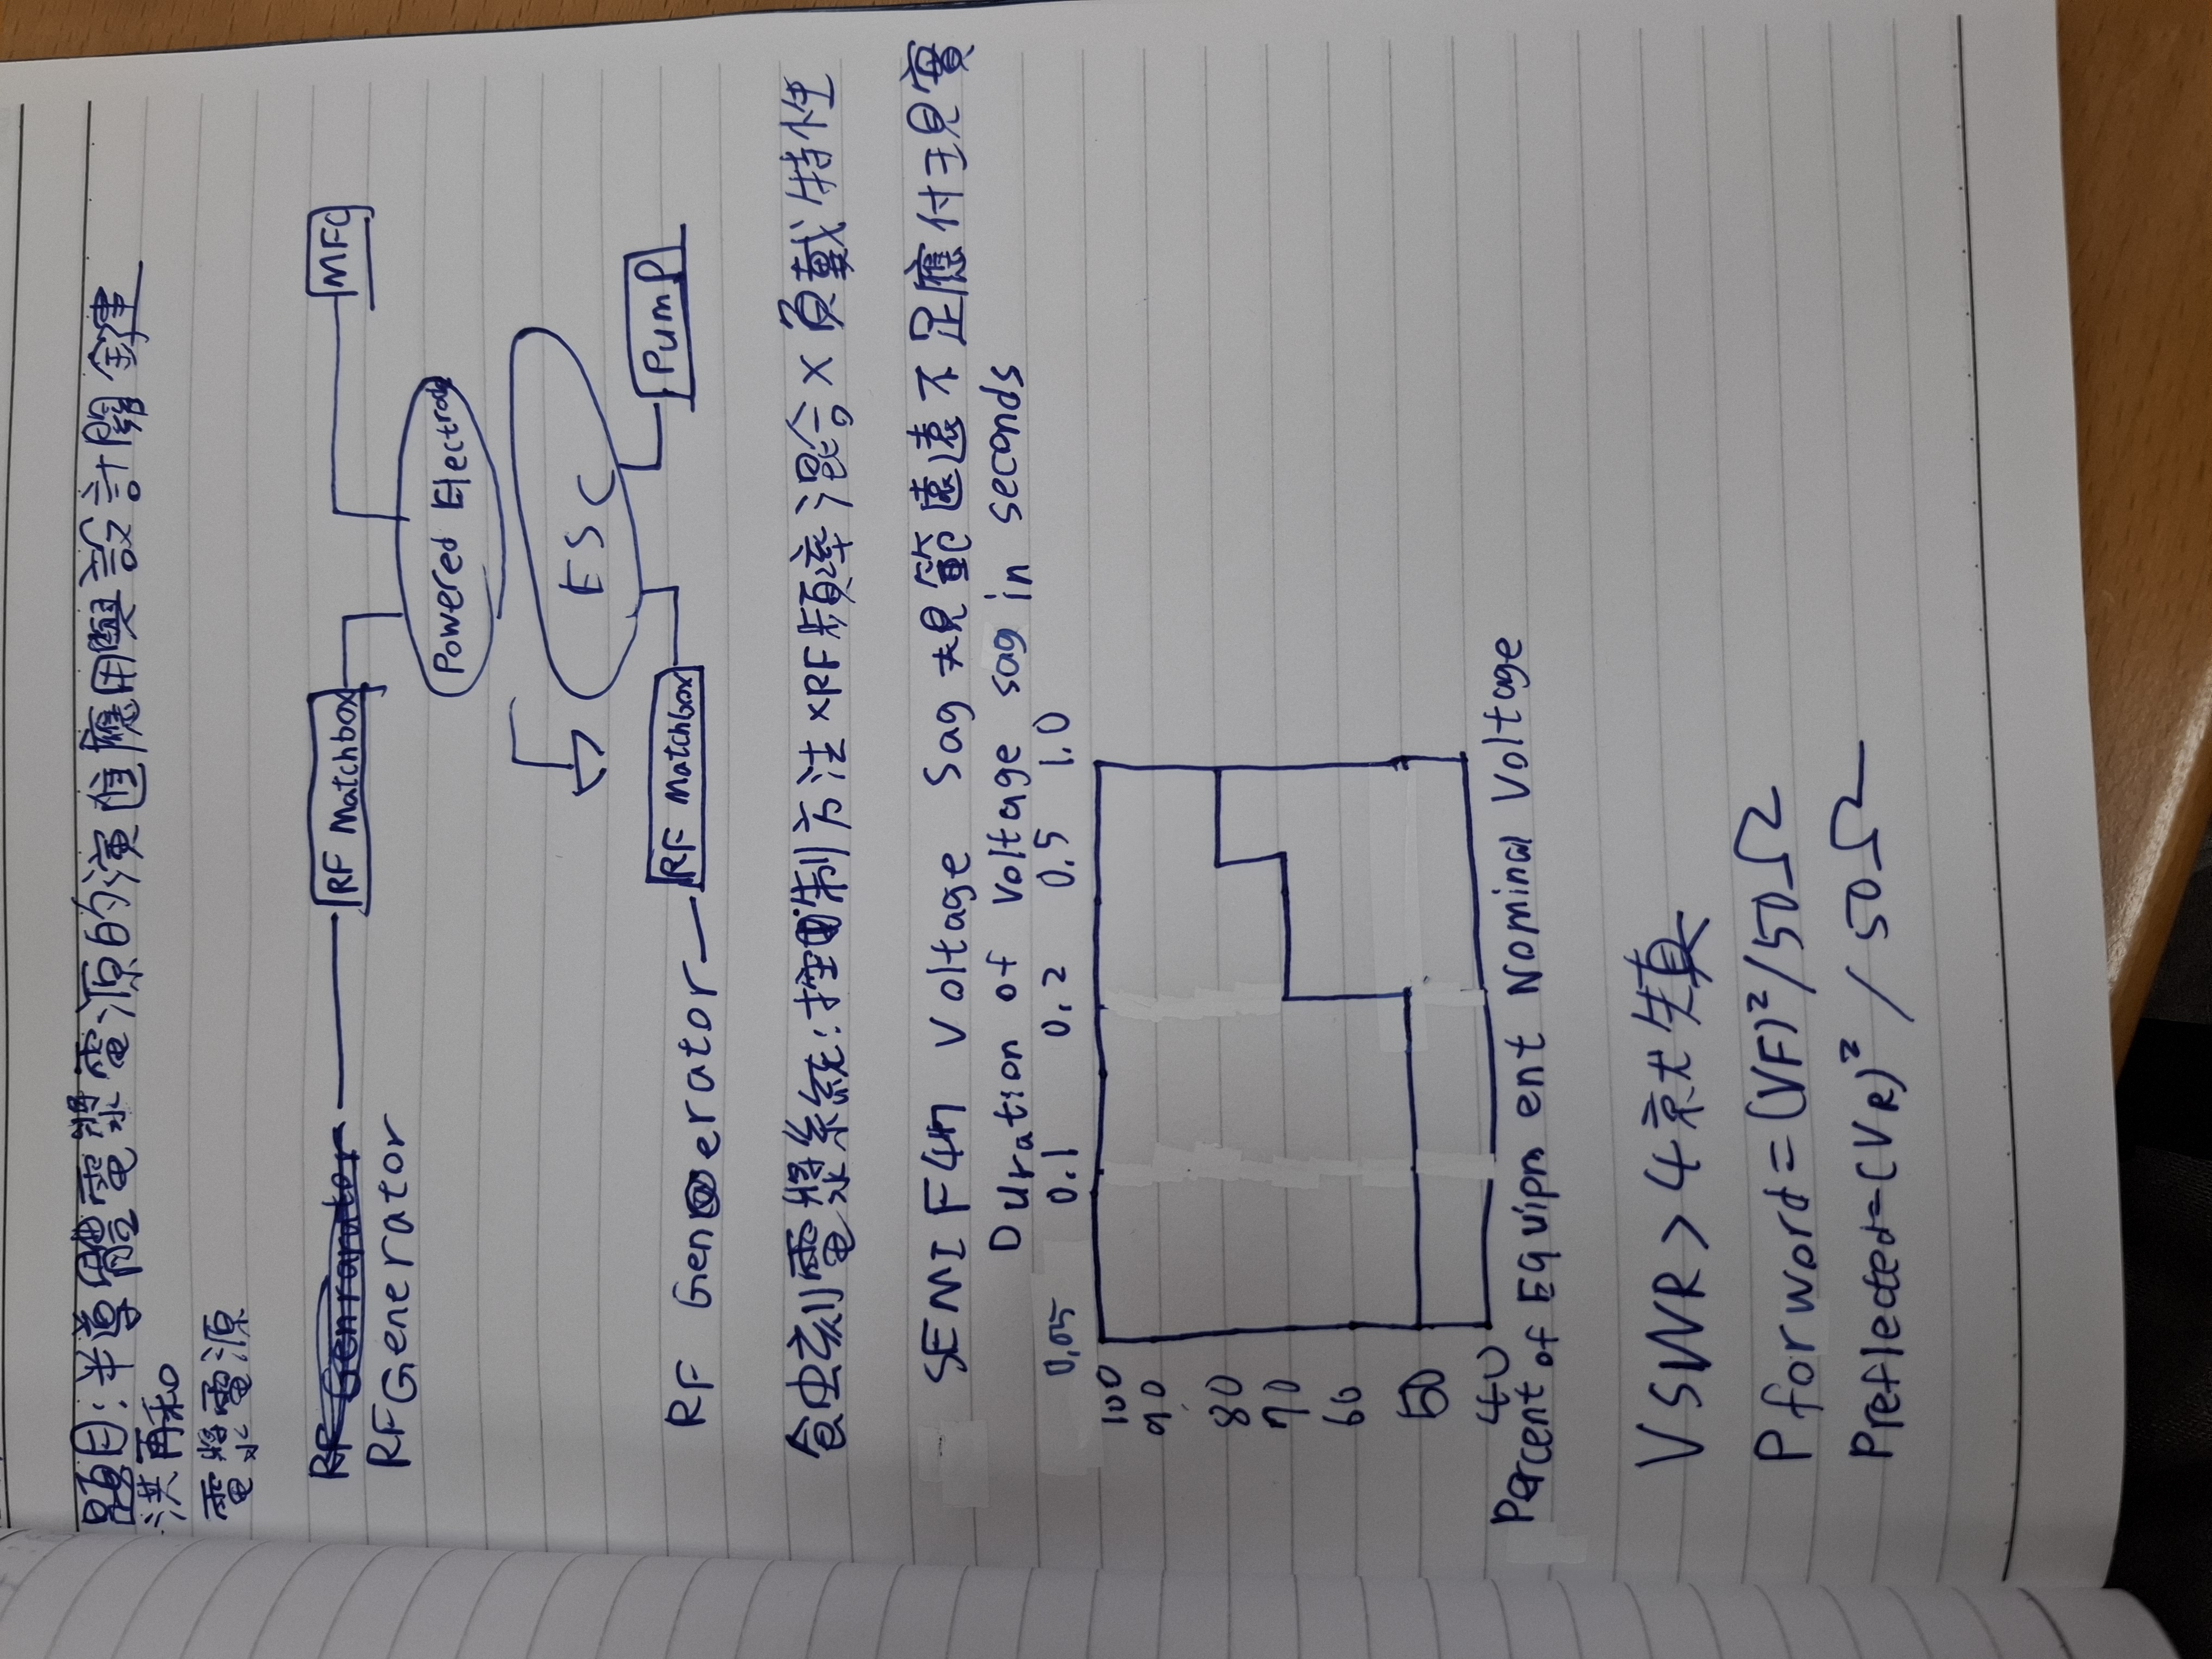 題目:半導體電漿電源的演進應用與設計關鍵
洪再和
電漿電源
RF Matchbox
MFC
RF Generator
Powered Electrode
ESC
RF Generator
RF Matchbox
Pump
蝕刻電漿系統:控制方法×RF頻率混合×負載特性
SEMI F47 Voltage Sag 規範遠遠不足應付現實
Duration of Voltage sag in seconds
0.05 0.1 0.2 0.5 1.0
100
90
80
70
60
50
40
Percent of Equipment Nominal Voltage
VSWR > 4 就
P forword = (VF)²/50Ω
Preflected = (VR)² / 50Ω